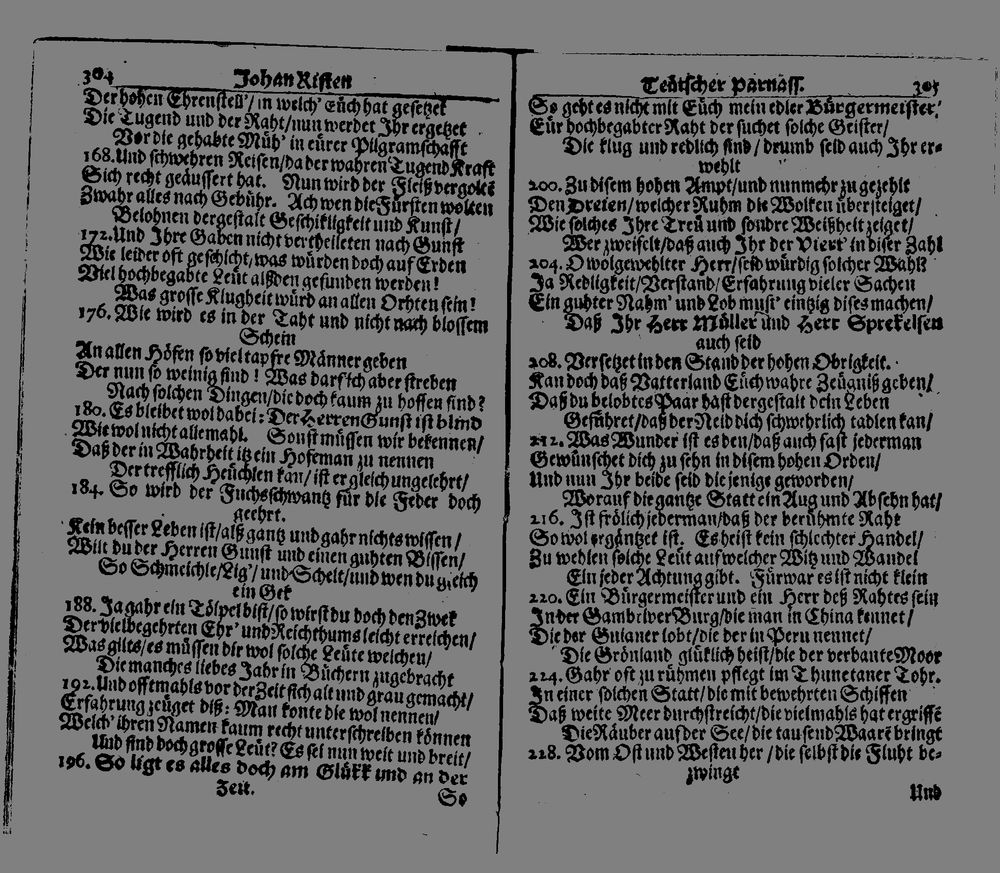 304 Johan Risten
Der hohen Ehrenstell'/in welch' Eüch hat gesetzet
Die Tugend und der Raht/nun werdet Ihr ergetzet
Vor die gehabte Müh' in eürer Pilgramschafft
168. Und schwehren Reisen/da der wahren Tugend Kraft
Sich recht geäussert hat. Nun wird der Fleiß vergolẽ
Zwahr alles nach Gebühr. Ach wen die Fürsten wolten
Belohnen dergestalt Geschikligkeit und Kunst/
172. Und Ihre Gaben nicht vertheileten nach Gunst
Wie leider oft geschicht/was würden doch auf Erden
Viel hochbegabte Leüt alßden gefunden werden!
Was grosse Klugheit würd an allen Orhten sein!
176. Wie wird es in der Taht und nicht nach blossem
Schein
An allen Höfen so viel tapfre Männer geben
Der nun so weinig sind! Was darf ich aber streben
Nach solchen Dingen/die doch kaum zu hoffen sind?
180. Es bleibet wol dabei: Der Herren Gunst ist blind
Wie wol nicht allemahl. Sonst müssen wir bekennen/
Daß der in Wahrheit itz ein Hofeman zu nennen
Der trefflich Heüchlen kan/ist er gleich ungelehrt/
184. So wird der Fuchsschwantz für die Feder doch
geehrt.
Kein besser Leben ist/alß gantz und gahr nichts wissen/
Wilt du der Herren Gunst und einen guhten Bissen/
So Schmeichle/Lig'/und Schelt/und wen du gleich
ein Gek
188. Ja gahr ein Tölpel bist/so wirst du doch den Zwek
Der vielbegehrten Ehr' und Reichthums leicht erreichen/
Was gilts/es müssen dir wol solche Leüte weichen/
Die manches liebes Jahr in Büchern zugebracht
192. Und offtmahls vor der Zeit sich alt und grau gemacht/
Erfahrung zeüget diß: Man konte die wol nennen/
Welch' ihren Namen kaum recht unterschreiben können
Und sind doch grosse Leüt? Es sei nun weit und breit/
196. So ligt es alles doch am Glükk und an der
Zeit.
So
Teütscher Parnass. 305
So geht es nicht mit Eüch mein edler Bürgermeister/
Eür hochbegabter Raht der suchet solche Geister/
Die klug und redlich sind/drumb seid auch Ihr er-
wehlt
200. Zu disem hohen Ampt/und nunmehr zu gezehlt
Den Dreien/welcher Ruhm die Wolken übersteiget/
Wie solches Ihre Treü und sondre Weißheit zeiget/
Wer zweifelt/daß auch Ihr der Viert' in diser Zahl
204. O wolgewehlter Herr/seid würdig solcher Wahl?
Ja Redligkeit/Verstand/Erfahrung vieler Sachen
Ein guhter Nahm' und Lob must' eintzig dises machen/
Daß Ihr Herr Müller und Herr Sprekelsen
auch seid
208. Versetzet in den Stand der hohen Obrigkeit.
Kan doch daß Vatterland Eüch wahre Zeügniß geben/
Daß du belobtes Paar hast dergestalt dein Leben
Geführet/daß der Neid dich schwehrlich tadlen kan/
212. Was Wunder ist es den/daß auch fast jederman
Gewünschet dich zu sehn in disem hohen Orden/
Und nun Ihr beide seid die jenige geworden/
Worauf die gantze Statt ein Aug und Absehn hat/
216. Ist frölich jederman/daß der berühmte Raht
So wol ergäntzet ist. Es heist kein schlechter Handel/
Zu wehlen solche Leüt auf welcher Witz und Wandel
Ein jeder Achtung gibt. Fürwar es ist nicht klein
220. Ein Bürgermeister und ein Herr deß Rahtes sein
In der Gambriver Burg/die man in China kennet/
Die der Guianer lobt/die der in Peru nennet/
Die Grönland glüklich heist/die der verbante Moor
224. Gahr oft zu rühmen pflegt im Thunetaner Tohr.
In einer solchen Statt/die mit bewehrten Schiffen
Daß weite Meer durchstreicht/die vielmahls hat ergriffẽ
Die Räuber auf der See/die tausend Waarẽ bringt
228. Vom Ost und Westen her/die selbst die Fluht be-
zwingt
Und